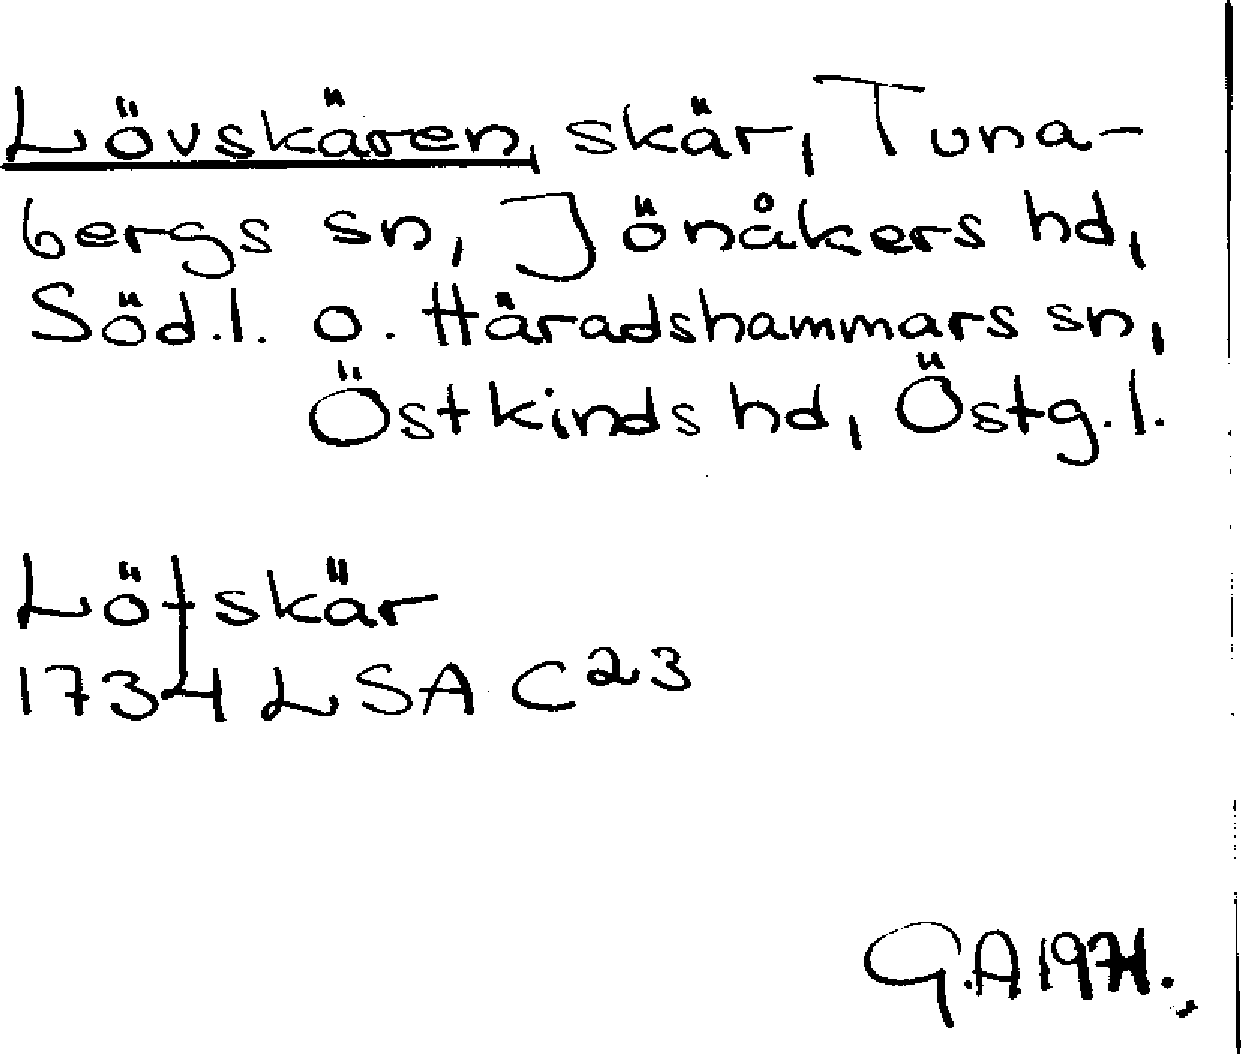 Lövskären, skär, Tuna-
bergs sn, Jönåkers hd,
Söd.l. o. Häradshammars sn,
Östkinds hd, Östg.l.
Löfskär
1734 LSA C23
G.A 1971.